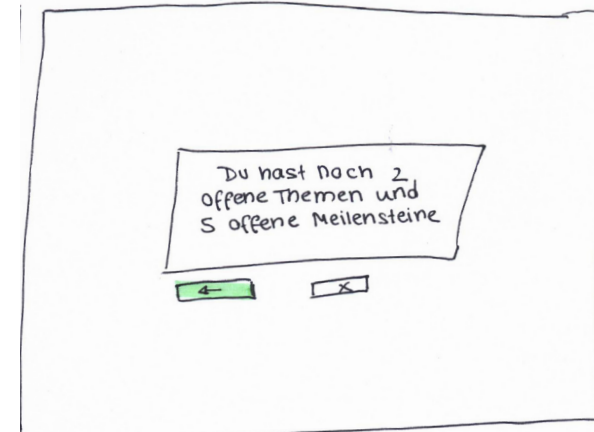 Du hast noch 2
offene Themen und
5 offene Meilensteine
←
X